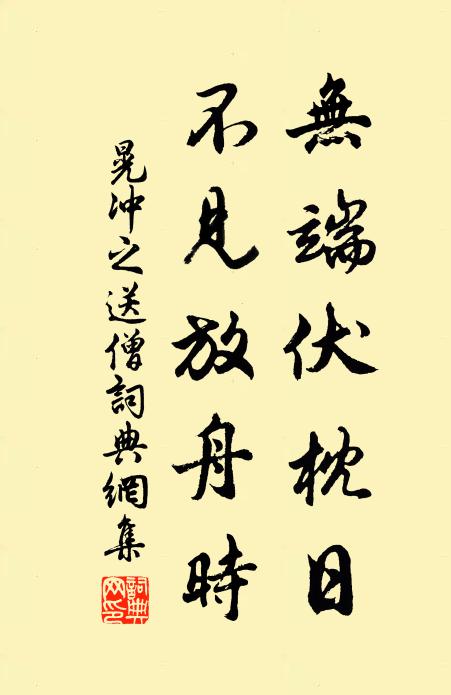 無端伏枕日
不見放舟時
晁沖之送僧詞典網集
詞典
网印